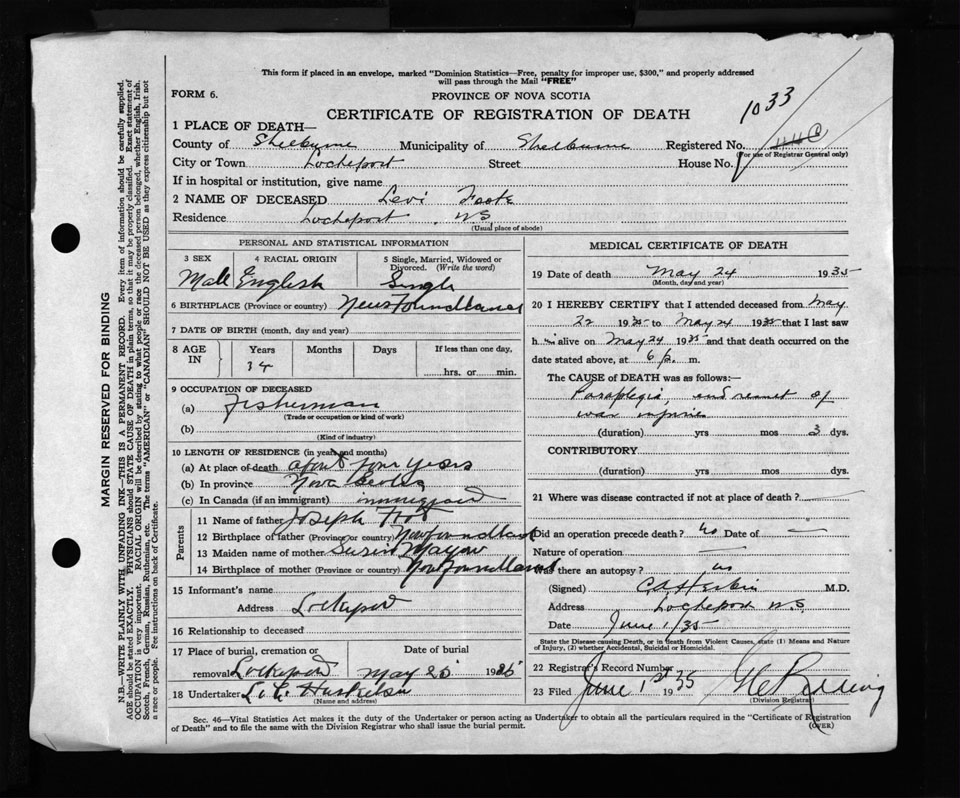 This form if placed in an envelope, marked "Dominion Statistics—Free, penalty for improper use, $300," and properly addressed
will pass through the Mail "FREE"
FORM 6. PROVINCE OF NOVA SCOTIA
1033
CERTIFICATE OF REGISTRATION OF DEATH
1 PLACE OF DEATH—
County of Shelburne Municipality of Shelburne Registered No.
(For use of Registrar General only)
City or Town Lockeport Street House No.
If in hospital or institution, give name
2 NAME OF DECEASED Levi Foote
Residence Lockeport N.S
(Usual place of abode)
PERSONAL AND STATISTICAL INFORMATION
3 SEX 4 RACIAL ORIGIN 5 Single, Married, Widowed or
Divorced. (Write the word)
Male English Single
6 BIRTHPLACE (Province or country) Newfoundland
7 DATE OF BIRTH (month, day and year)
8 AGE IN Years Months Days If less than one day,
34 hrs. or min.
9 OCCUPATION OF DECEASED
(a) Fisherman
(Trade or occupation or kind of work)
(b)
(Kind of industry)
10 LENGTH OF RESIDENCE (in years and months)
(a) At place of death about four years
(b) In province Nova Scotia
(c) In Canada (if an immigrant) immigrant
Parents
11 Name of father Joseph Foot
12 Birthplace of father (Province or country) Newfoundland
13 Maiden name of mother
14 Birthplace of mother (Province or country) Newfoundland
15 Informant's name
Address Lockeport
16 Relationship to deceased
17 Place of burial, cremation or Date of burial
removal Lockeport May 25 1935
18 Undertaker L. E. Huskelson
(Name and address)
MEDICAL CERTIFICATE OF DEATH
19 Date of death May 24 1935
(Month, day and year)
20 I HEREBY CERTIFY that I attended deceased from May
22 1935 to May 24 1935 that I last saw
him alive on May 24 1935 and that death occurred on the
date stated above, at 6 p. m.
The CAUSE of DEATH was as follows:—
Paraplegia, end result of
war injuries
(duration) yrs mos 3 dys.
CONTRIBUTORY
(duration) yrs mos dys.
21 Where was disease contracted if not at place of death?
Did an operation precede death? No Date of —
Nature of operation —
Was there an autopsy? no
(Signed) M.D.
Address Lockeport N.S.
Date June 1/35
State the Disease causing Death, or in death from Violent Causes, state (1) Means and Nature
of Injury, (2) whether Accidental, Suicidal or Homicidal.
22 Registrar's Record Number
23 Filed June 1st 1935
(Division Registrar)
Sec. 46—Vital Statistics Act makes it the duty of the Undertaker or person acting as Undertaker to obtain all the particulars required in the "Certificate of Registration
of Death" and to file the same with the Division Registrar who shall issue the burial permit. (OVER)
MARGIN RESERVED FOR BINDING
N.B.—WRITE PLAINLY WITH UNFADING INK—THIS IS A PERMANENT RECORD. Every item of information should be carefully supplied.
AGE should be stated EXACTLY. PHYSICIANS should STATE CAUSE OF DEATH in plain terms, so that it may be properly classified. Exact statement of
OCCUPATION is very important. RACIAL ORIGIN will be described by stating to what people or race the deceased person belonged, whether English, Irish,
Scotch, French, German, Russian, Ruthenian, etc. The terms "AMERICAN" or "CANADIAN" SHOULD NOT BE USED as they express citizenship but not
a race or people. See instructions on back of Certificate.